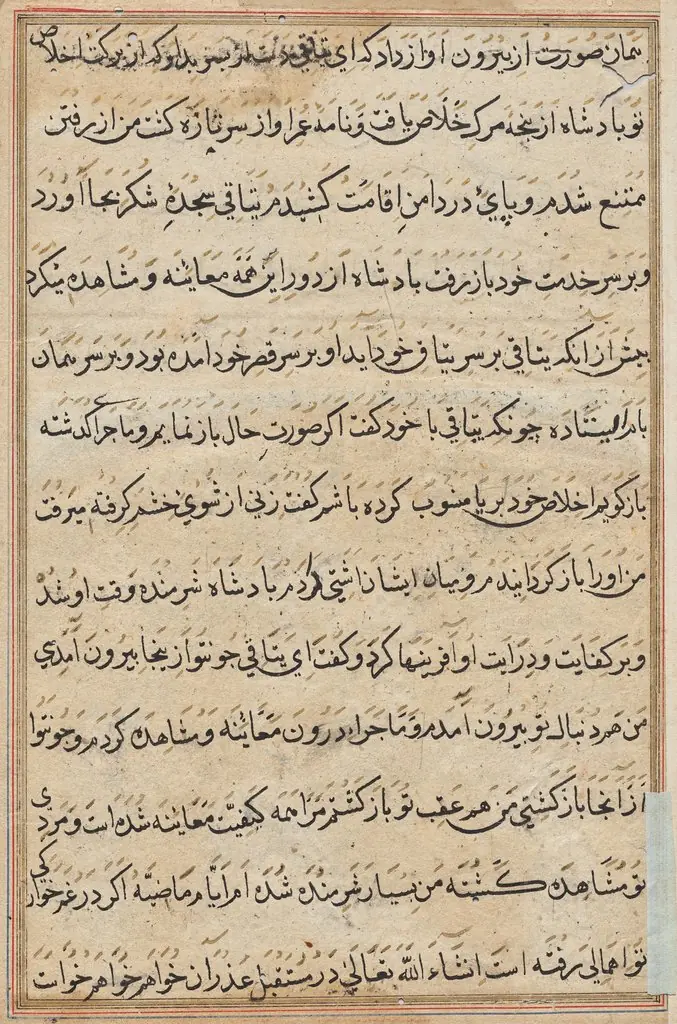 همان صورت از بیرون آواز داد که ای یتاقی دست از پسر بدار که از برکت اخلاص
تو بادشاه از پنجه مرک خلاص یافت و نامهٔ عمر او از سر تازه کشت من از رفتن
ممتنع شدم و پای در دامن اقامت کشیدم یتاقی سجدهٔ شکر بجا آورد
و بر سر خدمت خود باز رفت بادشاه از دور این همه معاینه و مشاهده میکرد
پیش از انکه یتاقی بر سر یتاق خود آید او بر سر قصر خود آمده بود و بر سر همان
بام ایستاده چونکه یتاقی با خود کفت اکر صورت حال باز نمایم و ماجرای کذشته
باز کویم اخلاص خود بریا منسوب کرده باشم کفت زنی از شوی خشم کرفته میرفت
من او را باز کردانیدم و میان ایشان آشتی دادم بادشاه شرمنده وقت او شد
و بر کفایت و درایت او آفرینها کرد و کفت ای یتاقی چو تو از ینجا بیرون آمدی
من هم دنبال تو بیرون آمدم و ماجرا درون معاینه و مشاهده کردم و چو تو
از آنجا باز کشتی من هم عقب تو باز کشتم مرا همه کیفیت معاینه شده است و مردی
تو مشاهده کشته من بسیار شرمنده شده ام ایام ماضیه اکر در غمخوارکی
تو اهمالی رفته است انشاء الله تعالی در مستقبل عذر آن خواهم خواهم خواست